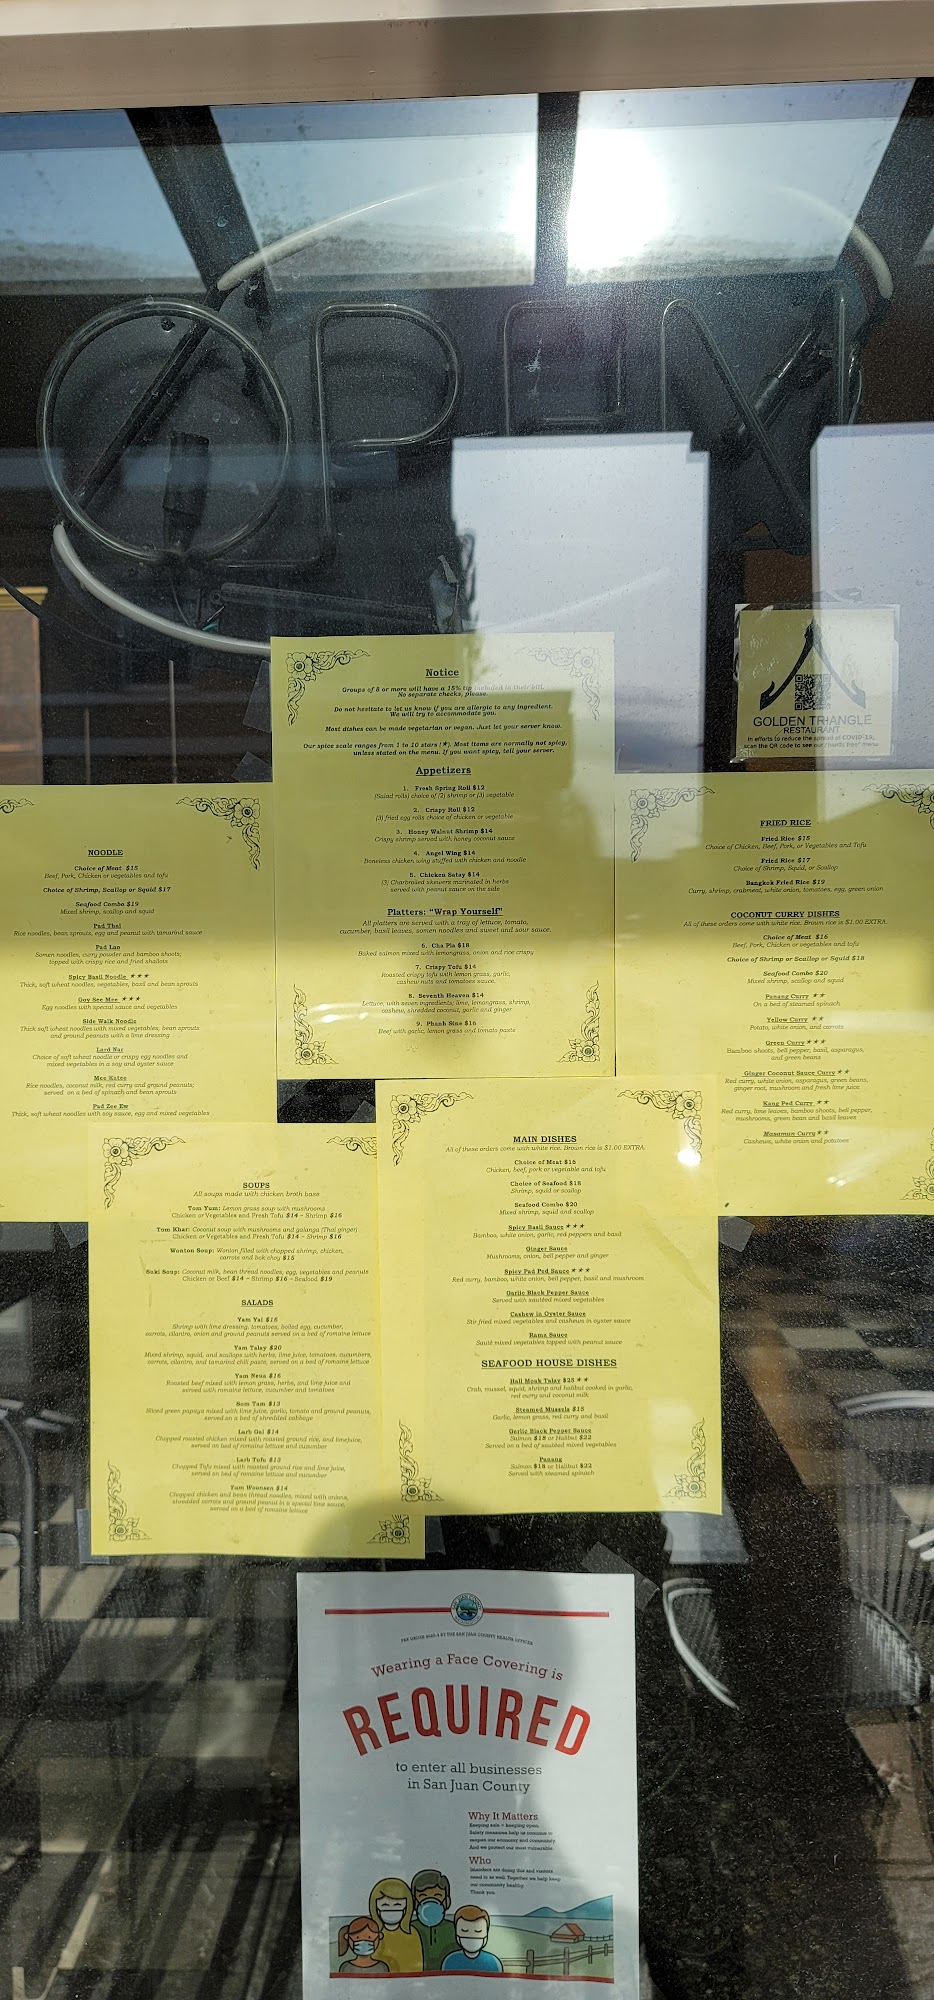 OPEN
GOLDEN TRIANGLE
RESTAURANT
In efforts to reduce the spread of COVID-19,
scan the QR code to see our "hands free" menu
Notice
Groups of 8 or more will have a 15% tip included in their bill.
No separate checks, please.
Do not hesitate to let us know if you are allergic to any ingredient.
We will try to accommodate you.
Most dishes can be made vegetarian or vegan. Just let your server know.
Our spice scale ranges from 1 to 10 stars (★). Most items are normally not spicy,
unless stated on the menu. If you want spicy, tell your server.
Appetizers
1. Fresh Spring Roll $12
(Salad rolls) choice of (2) shrimp or (3) vegetable
2. Crispy Roll $12
(3) fried egg rolls choice of chicken or vegetable
3. Honey Walnut Shrimp $14
Crispy shrimp served with honey coconut sauce
4. Angel Wing $14
Boneless chicken wing stuffed with chicken and noodle
5. Chicken Satay $14
(3) Charbroiled skewers marinated in herbs
served with peanut sauce on the side
Platters: "Wrap Yourself"
All platters are served with a tray of lettuce, tomato,
cucumber, basil leaves, somen noodles and sweet and sour sauce.
6. Cha Pla $18
Baked salmon mixed with lemongrass, onion and rice crispy
7. Crispy Tofu $14
Roasted crispy tofu with lemon grass, garlic,
cashew nuts and tomatoes sauce.
8. Seventh Heaven $14
Lettuce, with seven ingredients; lime, lemongrass, shrimp,
cashew, shredded coconut, garlic and ginger
9. Phanh Sine $16
Beef with garlic, lemon grass and tomato paste
NOODLE
Choice of Meat $15
Beef, Pork, Chicken or vegetables and tofu
Choice of Shrimp, Scallop or Squid $17
Seafood Combo $19
Mixed shrimp, scallop and squid
Pad Thai
Rice noodles, bean sprouts, egg and peanut with tamarind sauce
Pad Lao
Somen noodles, curry powder and bamboo shoots;
topped with crispy rice and fried shallots
Spicy Basil Noodle ★★★
Thick, soft wheat noodles, vegetables, basil and bean sprouts
Goy See Mee ★★★
Egg noodles with special sauce and vegetables
Side Walk Noodle
Thick soft wheat noodles with mixed vegetables, bean sprouts
and ground peanuts with a lime dressing
Lard Nar
Choice of soft wheat noodle or crispy egg noodles and
mixed vegetables in a soy and oyster sauce
Mee Katee
Rice noodles, coconut milk, red curry and ground peanuts;
served on a bed of spinach and bean sprouts
Pad Zee Ew
Thick, soft wheat noodles with soy sauce, egg and mixed vegetables
FRIED RICE
Fried Rice $15
Choice of Chicken, Beef, Pork, or Vegetables and Tofu
Fried Rice $17
Choice of Shrimp, Squid, or Scallop
Bangkok Fried Rice $19
Curry, shrimp, crabmeat, white onion, tomatoes, egg, green onion
COCONUT CURRY DISHES
All of these orders come with white rice. Brown rice is $1.00 EXTRA.
Choice of Meat $16
Beef, Pork, Chicken or vegetables and tofu
Choice of Shrimp or Scallop or Squid $18
Seafood Combo $20
Mixed shrimp, scallop and squid
Panang Curry ★★
On a bed of steamed spinach
Yellow Curry ★★
Potato, white onion, and carrots
Green Curry ★★★
Bamboo shoots, bell pepper, basil, asparagus,
and green beans
Ginger Coconut Sauce Curry ★★
Red curry, white onion, asparagus, green beans,
ginger root, mushroom and fresh lime juice
Kang Ped Curry ★★
Red curry, lime leaves, bamboo shoots, bell pepper,
mushrooms, green bean and basil leaves
Masaman Curry ★★
Cashews, white onion and potatoes
SOUPS
All soups made with chicken broth base
Tom Yum: Lemon grass soup with mushrooms
Chicken or Vegetables and Fresh Tofu $14 – Shrimp $16
Tom Khar: Coconut soup with mushrooms and galanga (Thai ginger)
Chicken or Vegetables and Fresh Tofu $14 – Shrimp $16
Wonton Soup: Wonton filled with chopped shrimp, chicken,
carrots and bok choy $15
Suki Soup: Coconut milk, bean thread noodles, egg, vegetables and peanuts
Chicken or Beef $14 – Shrimp $16 – Seafood $19
SALADS
Yam Yai $16
Shrimp with lime dressing, tomatoes, boiled egg, cucumber,
carrots, cilantro, onion and ground peanuts served on a bed of romaine lettuce
Yam Talay $20
Mixed shrimp, squid, and scallops with herbs, lime juice, tomatoes, cucumbers,
carrots, cilantro, and tamarind chili paste, served on a bed of romaine lettuce
Yam Neua $16
Roasted beef mixed with lemon grass, herbs, and lime juice and
served with romaine lettuce, cucumber and tomatoes
Som Tam $13
Sliced green papaya mixed with lime juice, garlic, tomato and ground peanuts,
served on a bed of shredded cabbage
Larb Gai $14
Chopped roasted chicken mixed with roasted ground rice, and lime juice,
served on bed of romaine lettuce and cucumber
Larb Tofu $13
Chopped Tofu mixed with roasted ground rice and lime juice,
served on bed of romaine lettuce and cucumber
Yum Woonsen $14
Chopped chicken and bean thread noodles, mixed with onions,
shredded carrots and ground peanut in a special lime sauce,
served on a bed of romaine lettuce
MAIN DISHES
All of these orders come with white rice. Brown rice is $1.00 EXTRA.
Choice of Meat $15
Chicken, beef, pork or vegetable and tofu
Choice of Seafood $18
Shrimp, squid or scallop
Seafood Combo $20
Mixed shrimp, squid and scallop
Spicy Basil Sauce ★★★
Bamboo, white onion, garlic, red peppers and basil
Ginger Sauce
Mushrooms, onion, bell pepper and ginger
Spicy Pad Ped Sauce ★★★
Red curry, bamboo, white onion, bell pepper, basil and mushroom
Garlic Black Pepper Sauce
Served with sautéed mixed vegetables
Cashew in Oyster Sauce
Stir fried mixed vegetables and cashews in oyster sauce
Rama Sauce
Sauté mixed vegetables topped with peanut sauce
SEAFOOD HOUSE DISHES
Hall Mouk Talay $25 ★★
Crab, mussel, squid, shrimp and halibut cooked in garlic,
red curry and coconut milk
Steamed Mussels $15
Garlic, lemon grass, red curry and basil
Garlic Black Pepper Sauce
Salmon $18 or Halibut $22
Served on a bed of sautéed mixed vegetables
Panang
Salmon $18 or Halibut $22
Served with steamed spinach
BY THE SAN JUAN COUNTY HEALTH OFFICER
Wearing a Face Covering is
REQUIRED
to enter all businesses
in San Juan County
Why It Matters
Keeping safe = keeping open.
Safety measures help us continue to
reopen our economy and community.
And we protect our most vulnerable.
Who
Islanders are doing this and visitors
need to as well. Together we help keep
our community healthy.
Thank you.